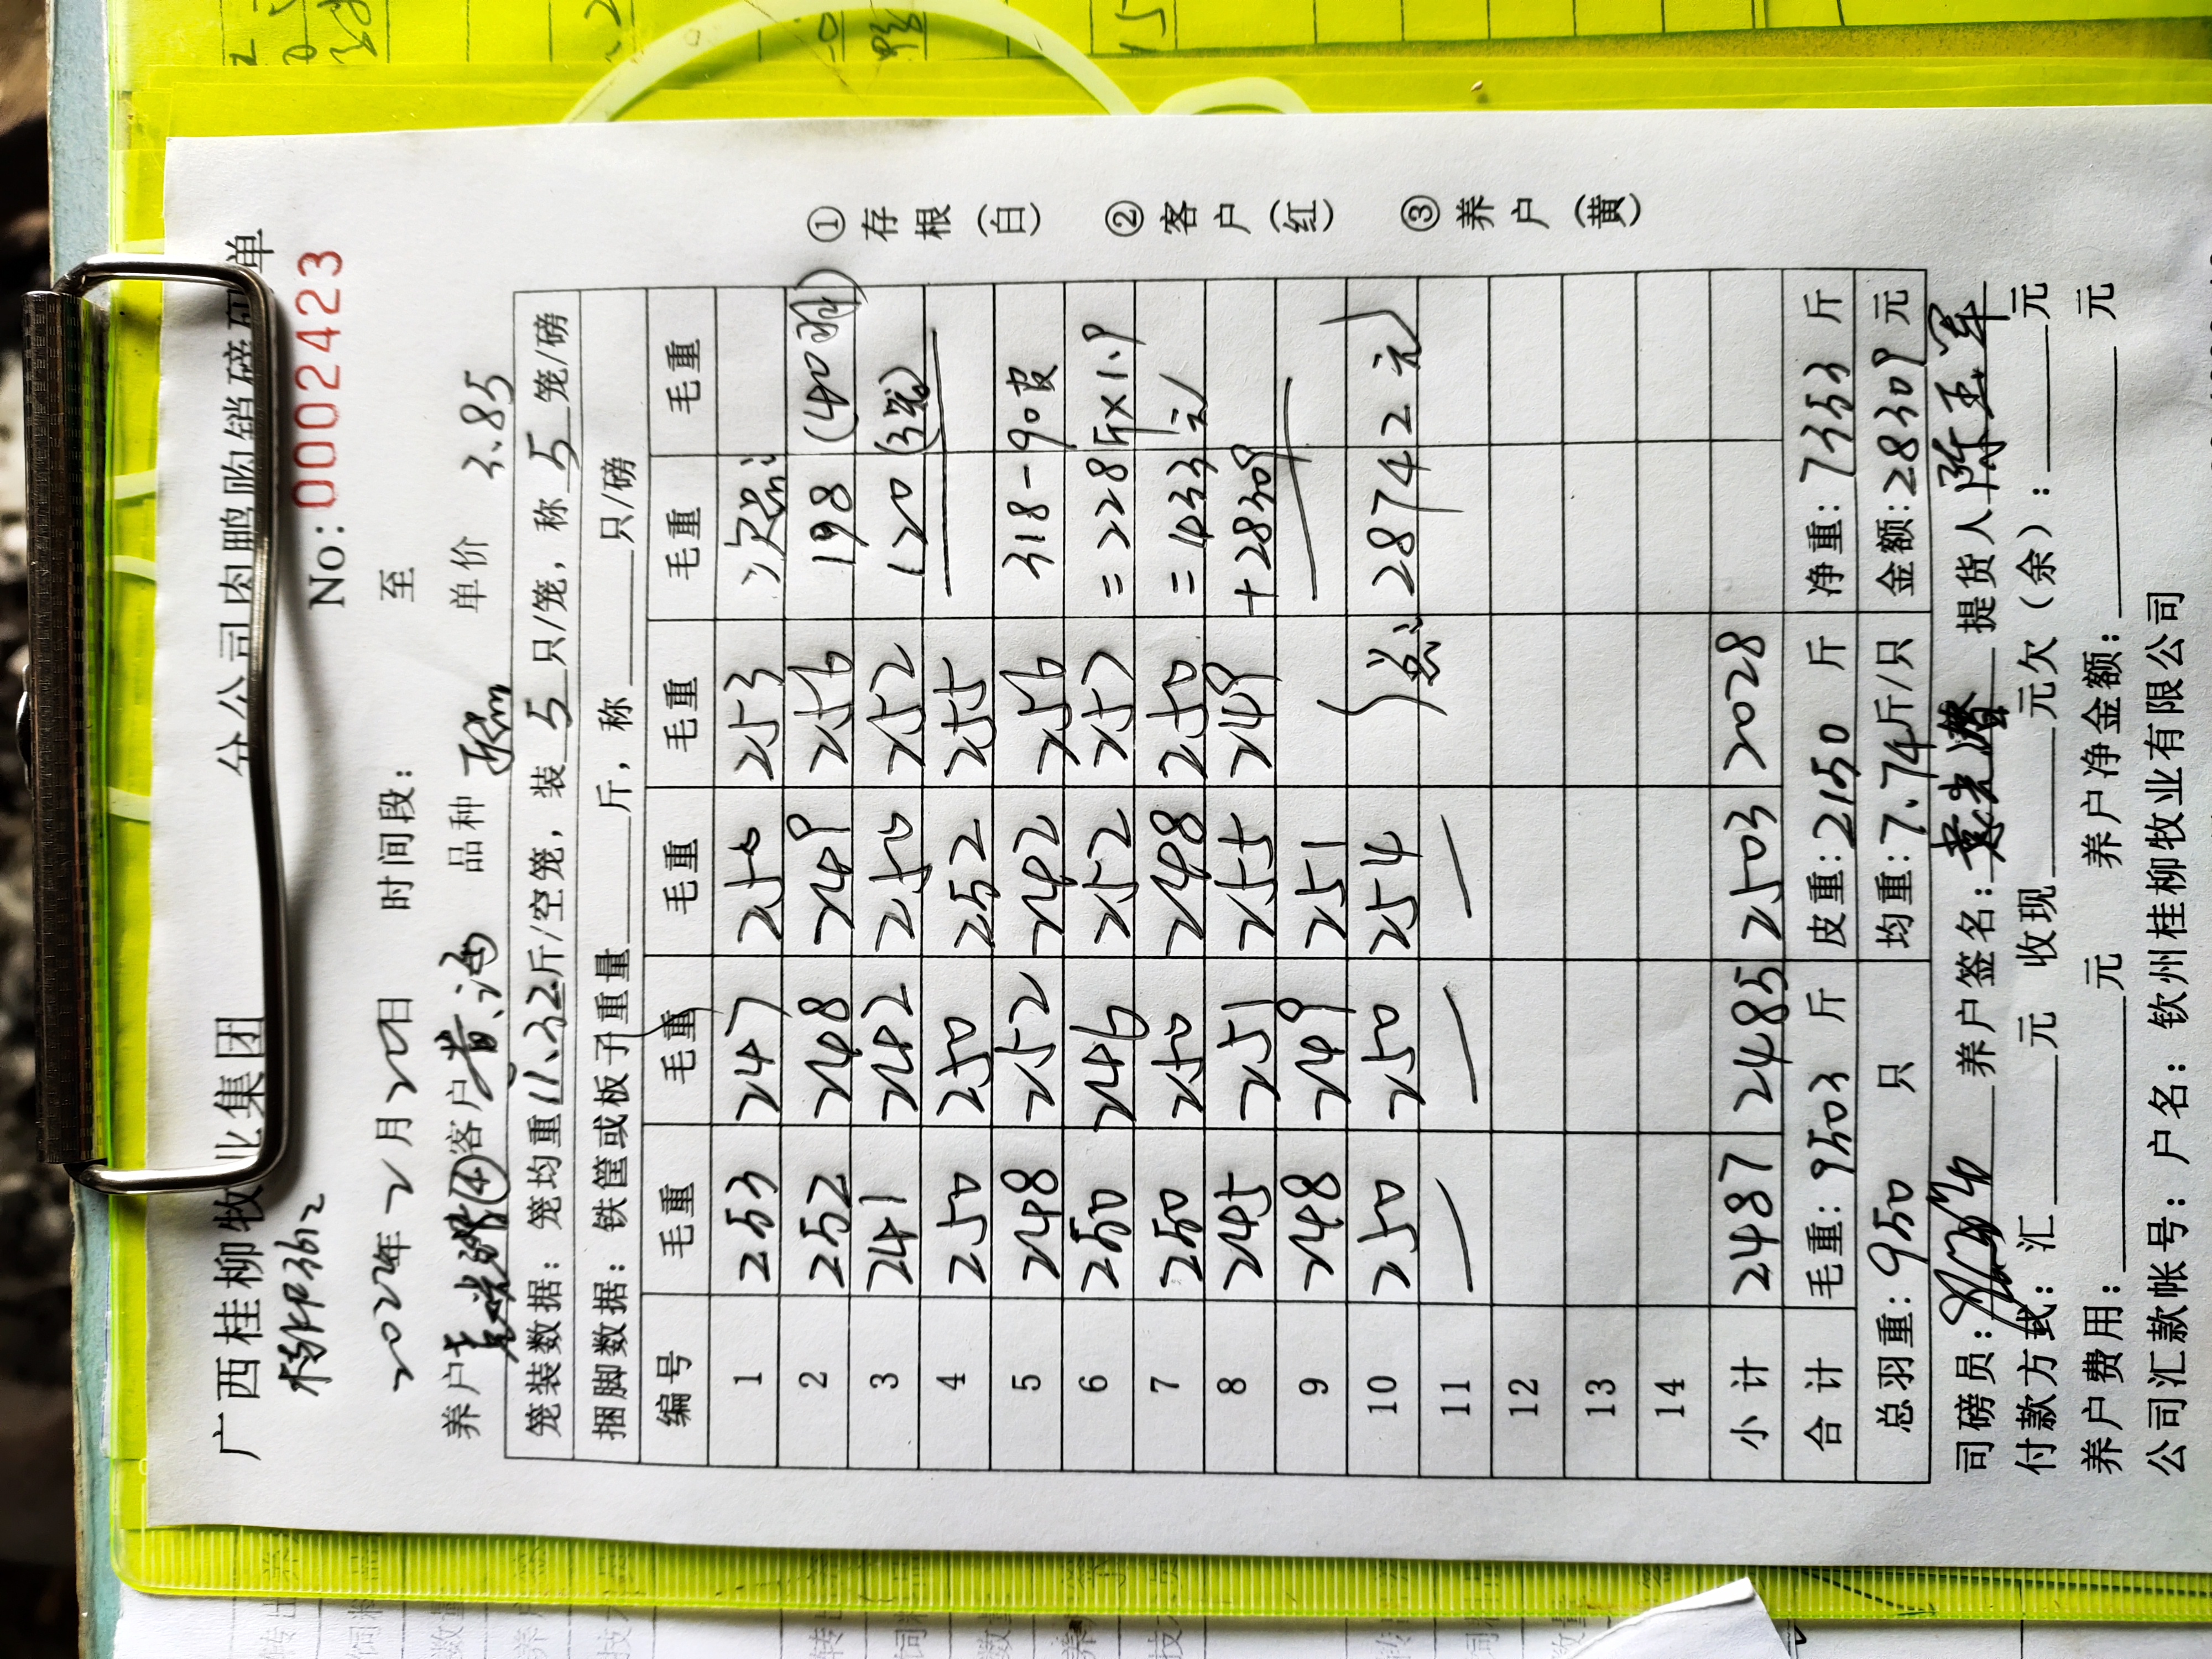 广西桂柳牧业集团 分公司肉鹏购销磅码单
No:0002423
2022年2月20日 时间段: 至
养户 ④ 客户 黄海 品种 单价 3.85
笼装数据: 笼均重11.32斤/空笼, 装 5 只/笼, 称 5 笼/磅
捆脚数据: 铁筐或板子重量 斤, 称 只/磅
编号 毛重 毛重 毛重 毛重 毛重 毛重
1 253 247 250 253 次品:
2 252 248 249 256 198 (40羽)
3 241 242 250 252 120 (3笼)
4 250 250 252 255
5 248 252 242 256 318-90皮
6 250 246 252 257 =228斤×1.9
7 250 250 248 250 =433元
8 245 251 255 249 +28309
9 248 249 251
10 250 250 254 总: 28742元
11 — — —
12
13
14
小计 2487 2485 2503 2028
合计 毛重: 9503 斤 皮重: 2150 斤 净重: 7353 斤
总羽重: 950 只 均重: 7.74斤/只 金额: 28309元
司磅员: 养户签名: 提货人
付款方式: 汇 元 收现 元欠(余): 元
养户费用: 元 养户净金额: 元
公司汇款帐号: 户名: 钦州桂柳牧业有限公司
①存根(白) ②客户(红) ③养户(黄)